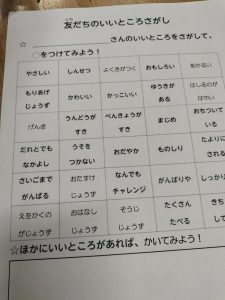 友だちのいいところさがし
☆ さんのいいところをさがして、
○をつけてみよう！
やさしい しんせつ よくきがつく おもしろい あかるい
もりあげじょうず かわいい かっこいい ゆうきがある はしるのがはやい
げんき うんどうがすき べんきょうがすき まじめ おちついて
だれとでもなかよし うそをつかない おだやか ものしり たよりに
さいごまでがんばる おたすけじょうず なんでもチャレンジ がんばりや しっかり
えをかくのがじょうず おはなしじょうず そうじじょうず たくさんたべる
☆ほかにいいところがあれば、かいてみよう！